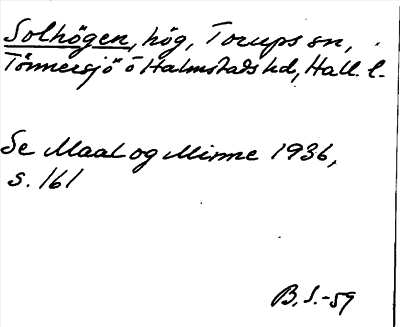 Solhögen, hög, Torups sn,
Tönnersjö o Halmstads hd, Hall. l.
Se Maal og Minne 1936,
s. 161
B.S.-59